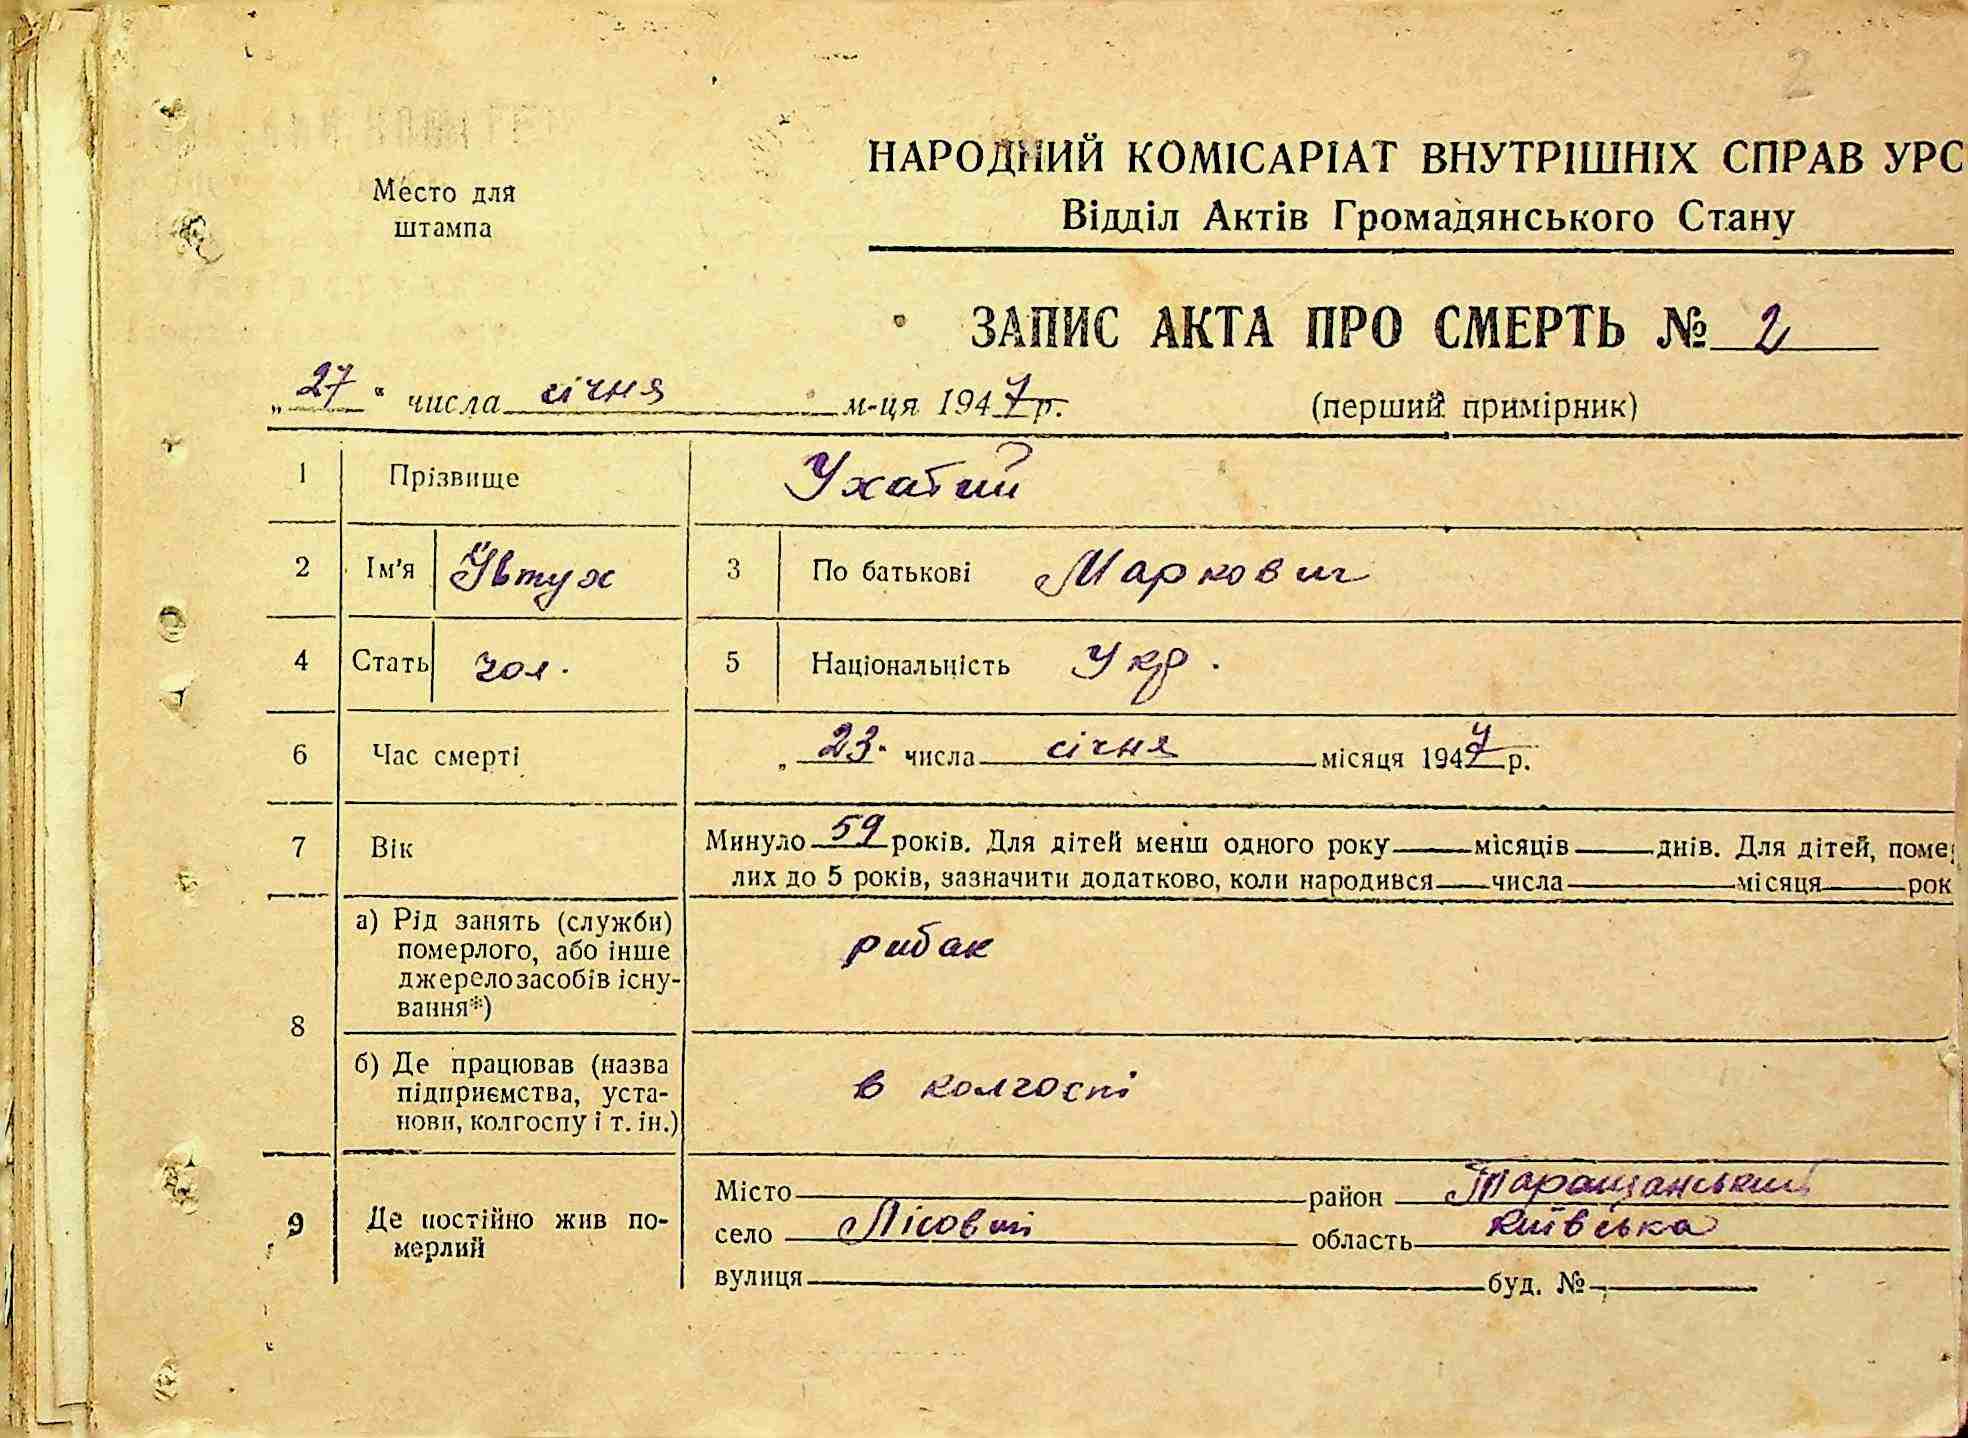 2
Место для
штампа
НАРОДНИЙ КОМІСАРІАТ ВНУТРІШНІХ СПРАВ УРС
Відділ Актів Громадянського Стану
ЗАПИС АКТА ПРО СМЕРТЬ № 2
„27“ числа січня м-ця 1947 р.
(перший примірник)
1 Прізвище Ухатий
2 Ім'я Ївтух 3 По батькові Маркович
4 Стать чол. 5 Національність Укр.
6 Час смерті „23" числа січня місяця 1947 р.
7 Вік Минуло 59 років. Для дітей менш одного року місяців днів. Для дітей, помер
лих до 5 років, зазначити додатково, коли народився числа місяця рок
8 а) Рід занять (служби)
померлого, або інше
джерело засобів існу-
вання*)
рибак
б) Де працював (назва
підприємства, уста-
нови, колгоспу і т. ін.)
в колгоспі
9 Де постійно жив по-
мерлий
Місто район Таращанський
село Лісовичі область Київська
вулиця буд. №